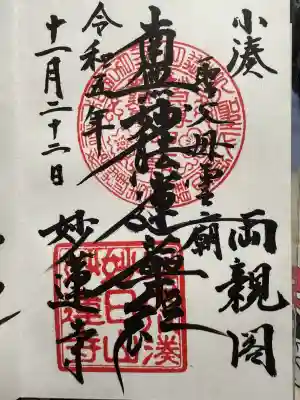 小湊
両親閣
聖父母霊廟
南無妙法蓮華経
令和五年
十一月二十二日
妙蓮寺